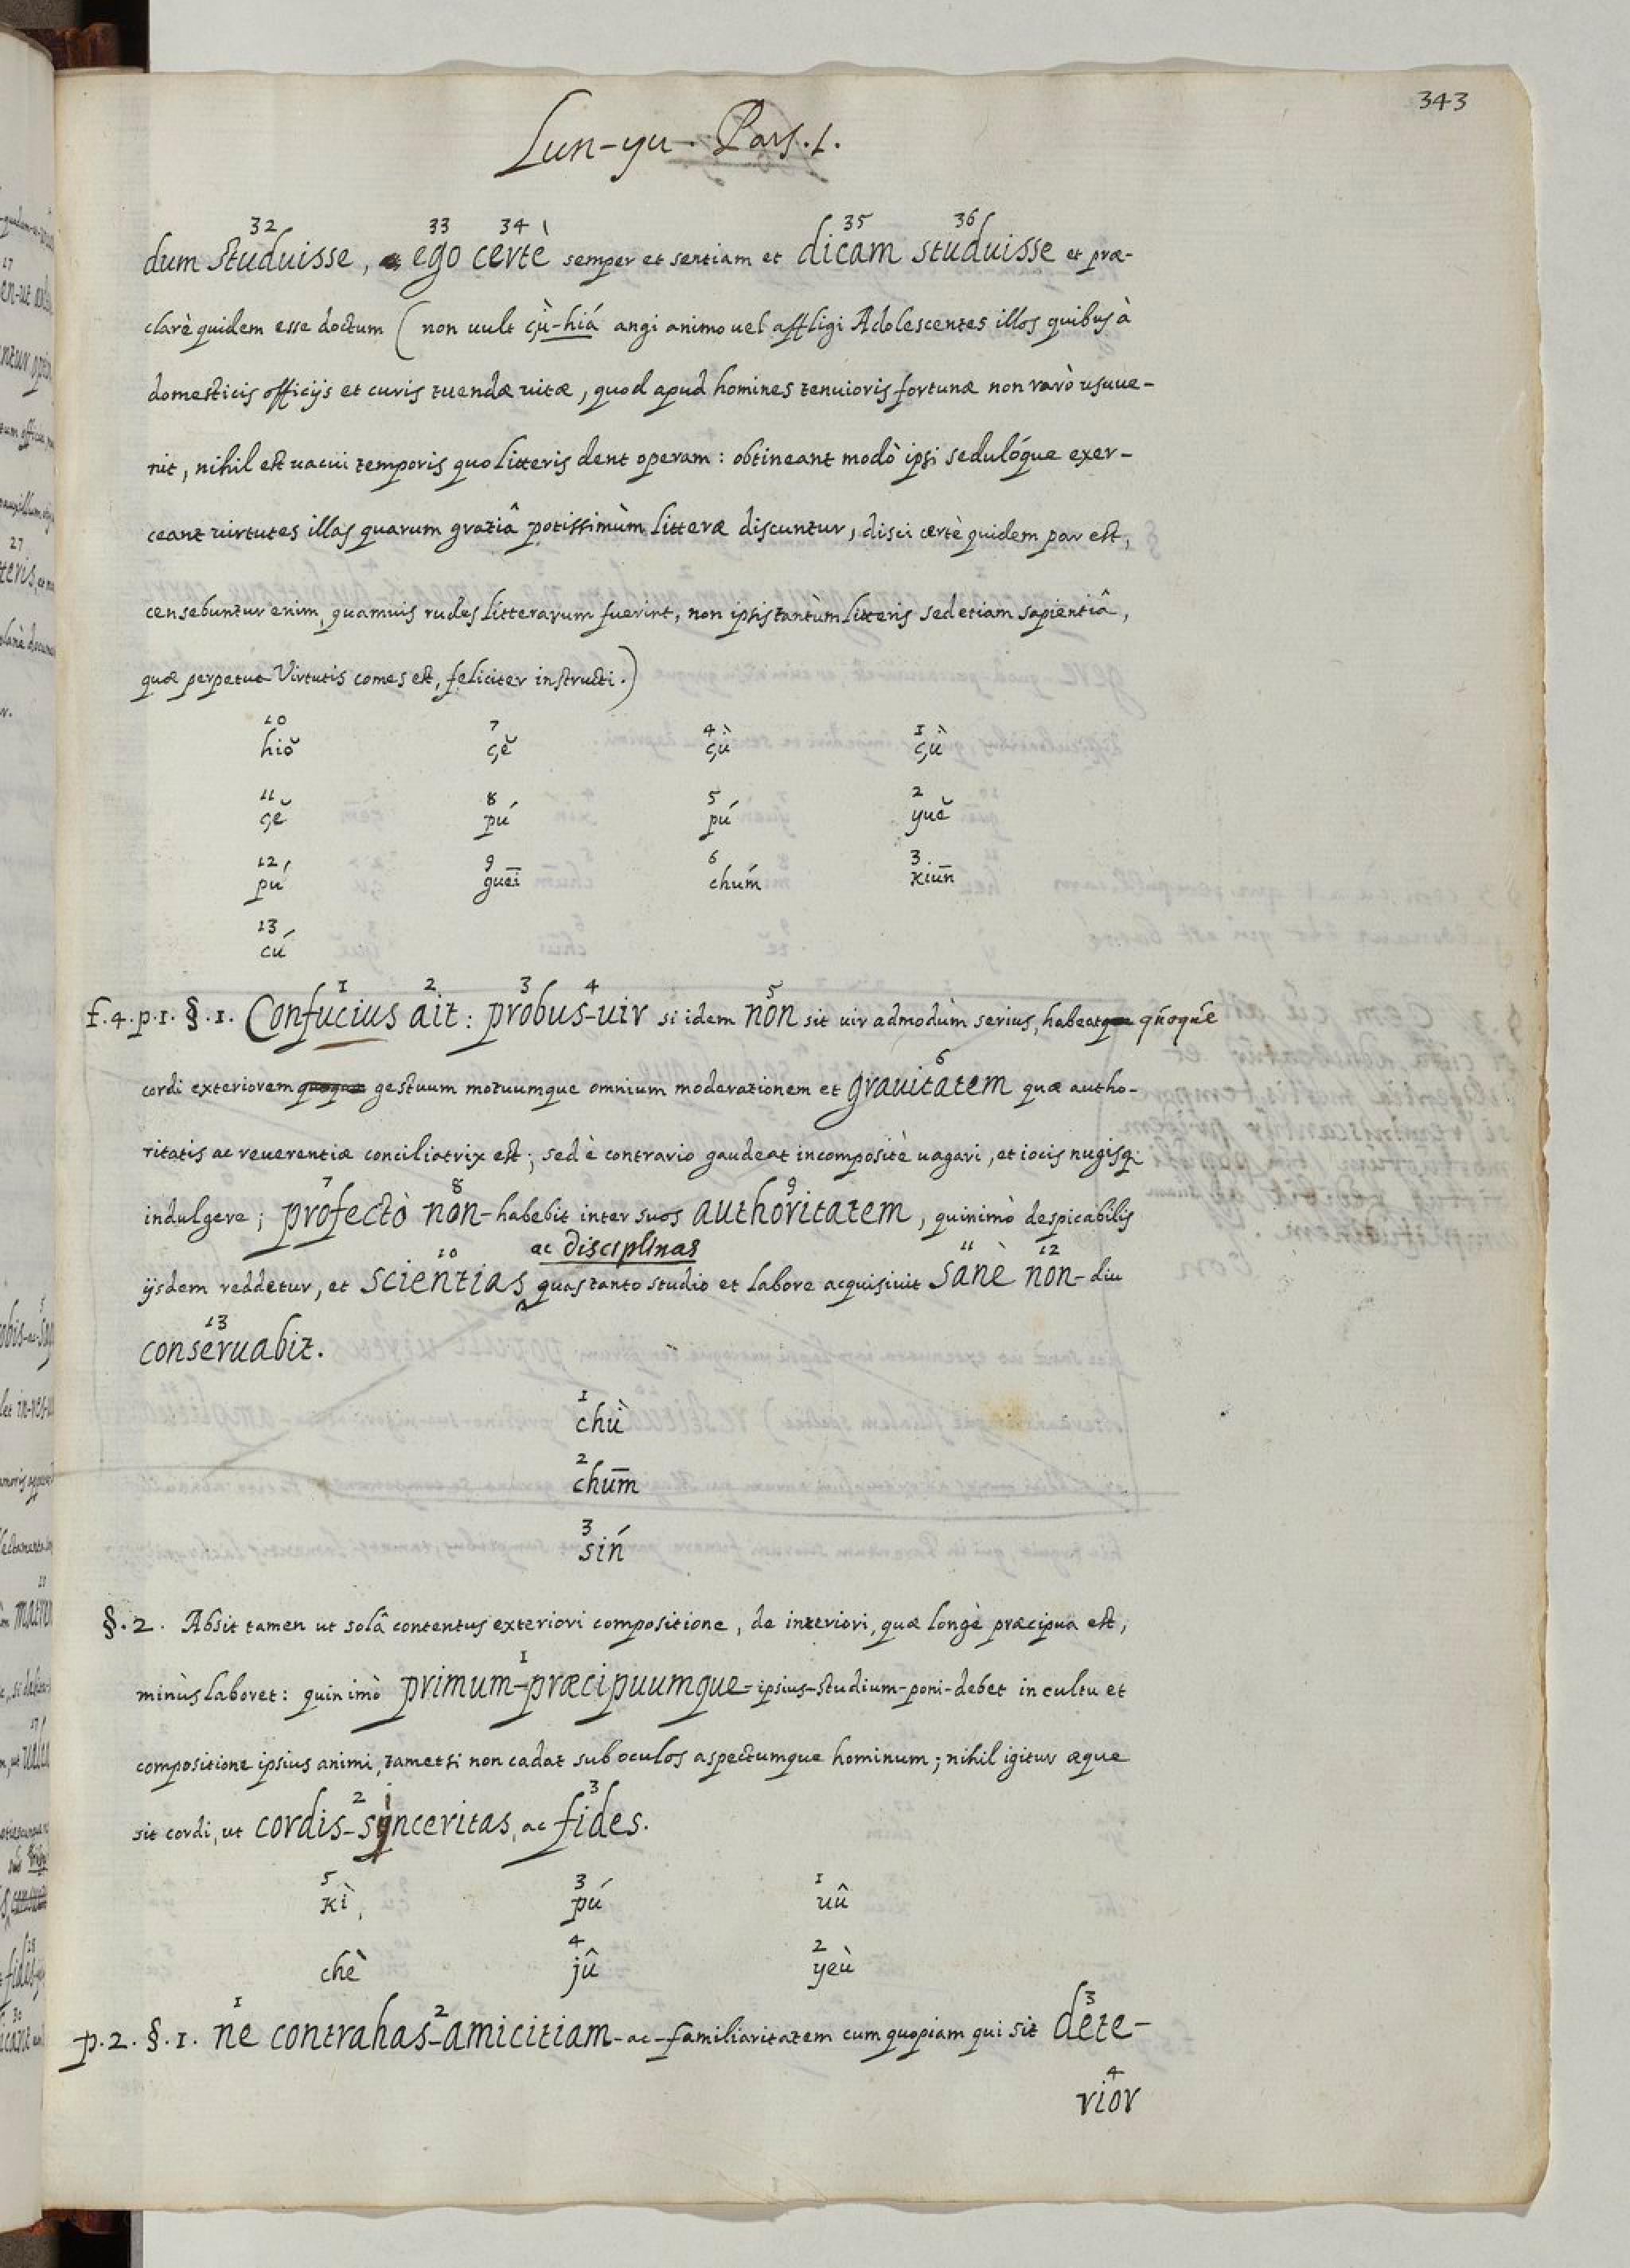 343
Lun-yu. Pars. 1.
32 33 34 35 36
dum studuisse, ego certè semper et sentiam et dicam studuisse et præ-
clarè quidem esse doctum ( non uult çù-hiá angi animo uel affligi Adolescentes illos quibus à
domesticis officijs et curis tuendæ uitæ, quod apud homines tenuioris fortunæ non rarò usuue-
nit, nihil est uacui temporis quo litteris dent operam: obtineant modò ipsi sedulóque exer-
ceant uirtutes illas quarum gratiâ potissimùm litteræ discuntur, disci certè quidem par est,
censebuntur enim, quamuis rudes litterarum fuerint, non ipsis tantùm litteris sed etiam sapientiâ,
quæ perpetua Virtutis comes est, feliciter instructi.)
10 7 4 1
hiŏ çĕ çù çù
11 8 5 2
çĕ pú pú yuĕ
12 9 6 3
pú guēi chúm kiūn
13
cú
1 2 3 4 5
f.4.p.1.§.1. Confucius ait: probus-uir si idem non sit uir admodùm serius, habeat quoque
6
cordi exteriorem quoque gestuum motuumque omnium moderationem et grauitatem quæ autho-
ritatis ac reuerentiæ conciliatrix est; sed è contrario gaudeat incompositè uagari, et iocis nugisq;
7 8 9
indulgere; profectò non-habebit inter suos authoritatem, quinimò despicabilis
10 ac disciplinas 11 12
ijsdem reddetur, et scientias quas tanto studio et labore acquisiuit sanè non-diu
13
conseruabit.
1
chù
2
chūm
3
sín
§.2. Absit tamen ut solâ contentus exteriori compositione, de interiori, quæ longè præcipua est,
1
minùs laboret: quinimò primum-præcipuumque-ipsius-studium-poni-debet in cultu et
compositione ipsius animi, tametsi non cadat sub oculos aspectumque hominum; nihil igitur æque
2 3
sit cordi, ut cordis-sinceritas, ac fides.
5 3 1
kì pú uû
4 2
chè jû yeù
1 2 3
p.2.§.1. ne contrahas-amicitiam-ac-familiaritatem cum quopiam qui sit dete-
4
rior